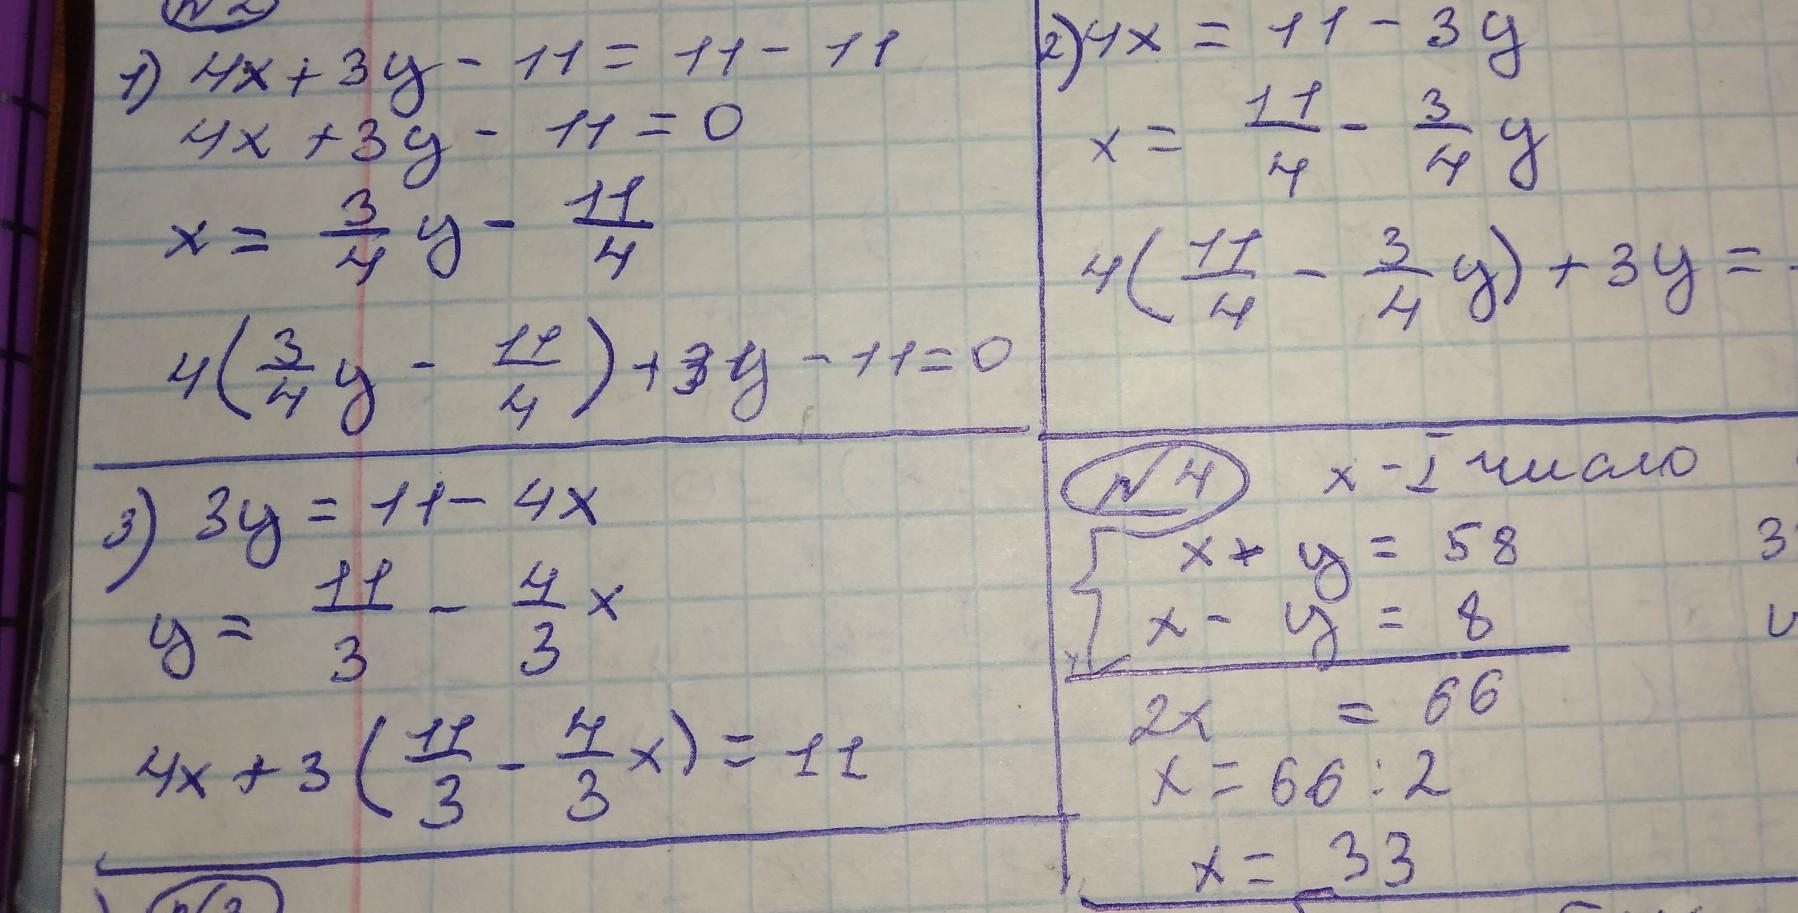 №2
1) 4x + 3y - 11 = 11 - 11
4x + 3y - 11 = 0
x = 3/4 y - 11/4
4(3/4 y - 11/4) + 3y - 11 = 0
2) 4x = 11 - 3y
x = 11/4 - 3/4 y
4(11/4 - 3/4 y) + 3y =
3) 3y = 11 - 4x
y = 11/3 - 4/3 x
4x + 3(11/3 - 4/3 x) = 11
№4 x - I число
x + y = 58
x - y = 8
2x = 66
x = 66 : 2
x = 33